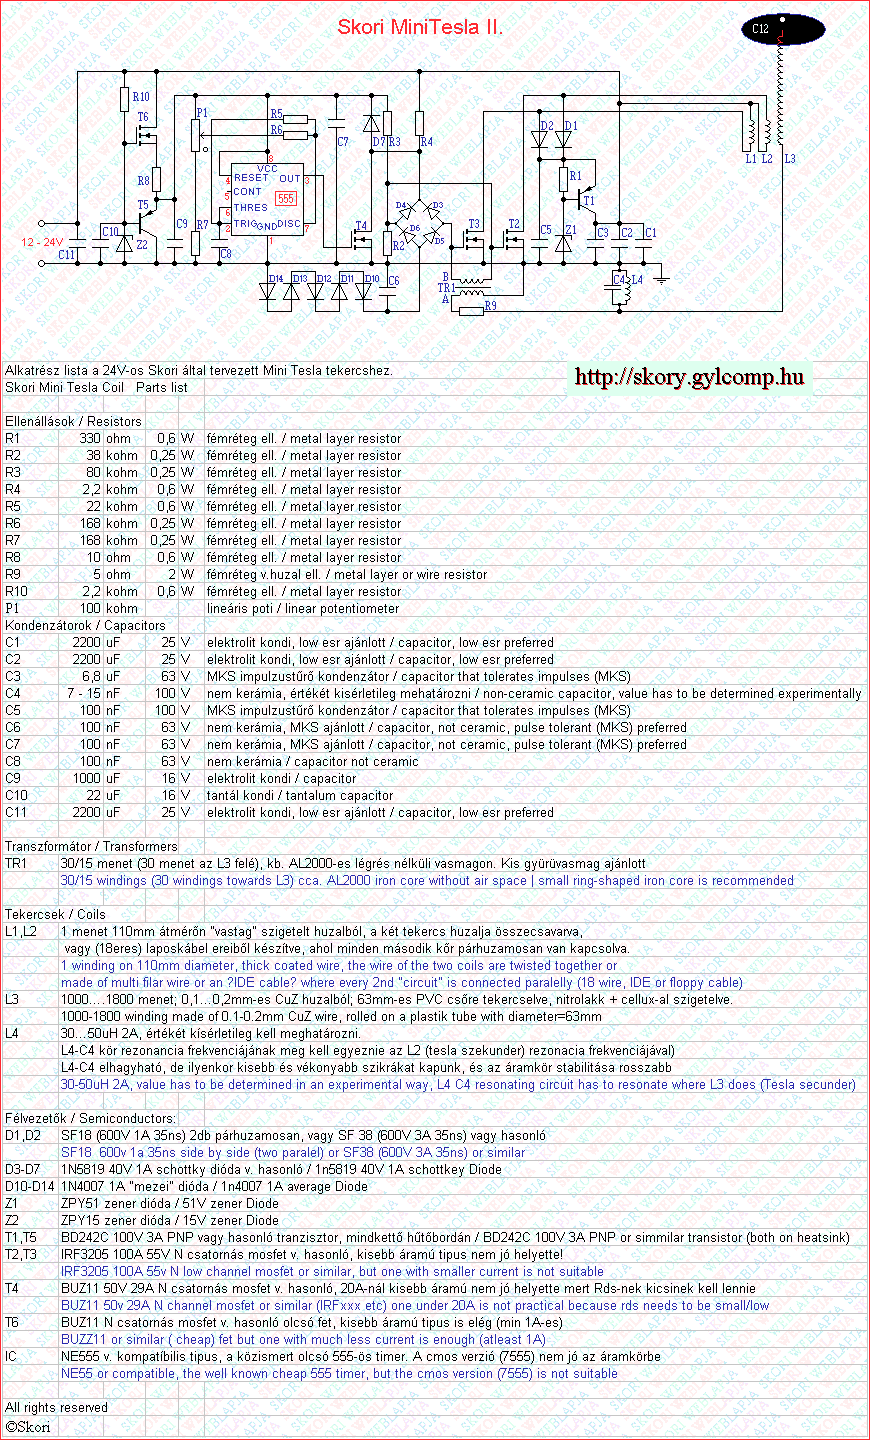 Skori MiniTesla II.
C12
R10
T6
P1
R5
R6
C7
D7
R3
R4
D2
D1
L1
L2
L3
R8
8
VCC
4
RESET
OUT
3
CONT
5
555
THRES
6
TRIG
GND
DISC
2
7
1
R1
T1
D4
D3
D6
D5
T5
C9
R7
C8
T4
R2
T3
T2
C5
Z1
C3
C2
C1
12 - 24V
C11
C10
Z2
D14
D13
D12
D11
D10
C6
B
TR1
A
R9
C4
L4
Alkatrész lista a 24V-os Skori által tervezett Mini Tesla tekercshez.
http://skory.gylcomp.hu
Skori Mini Tesla Coil Parts list
Ellenállások / Resistors
R1 330 ohm 0,6 W fémréteg ell. / metal layer resistor
R2 38 kohm 0,25 W fémréteg ell. / metal layer resistor
R3 80 kohm 0,25 W fémréteg ell. / metal layer resistor
R4 2,2 kohm 0,6 W fémréteg ell. / metal layer resistor
R5 22 kohm 0,6 W fémréteg ell. / metal layer resistor
R6 168 kohm 0,25 W fémréteg ell. / metal layer resistor
R7 168 kohm 0,25 W fémréteg ell. / metal layer resistor
R8 10 ohm 0,6 W fémréteg ell. / metal layer resistor
R9 5 ohm 2 W fémréteg v.huzal ell. / metal layer or wire resistor
R10 2,2 kohm 0,6 W fémréteg ell. / metal layer resistor
P1 100 kohm lineáris poti / linear potentiometer
Kondenzátorok / Capacitors
C1 2200 uF 25 V elektrolit kondi, low esr ajánlott / capacitor, low esr preferred
C2 2200 uF 25 V elektrolit kondi, low esr ajánlott / capacitor, low esr preferred
C3 6,8 uF 63 V MKS impulzustűrő kondenzátor / capacitor that tolerates impulses (MKS)
C4 7 - 15 nF 100 V nem kerámia, értékét kisérletileg mehatározni / non-ceramic capacitor, value has to be determined experimentally
C5 100 nF 100 V MKS impulzustűrő kondenzátor / capacitor that tolerates impulses (MKS)
C6 100 nF 63 V nem kerámia, MKS ajánlott / capacitor, not ceramic, pulse tolerant (MKS) preferred
C7 100 nF 63 V nem kerámia, MKS ajánlott / capacitor, not ceramic, pulse tolerant (MKS) preferred
C8 100 nF 63 V nem kerámia / capacitor not ceramic
C9 1000 uF 16 V elektrolit kondi / capacitor
C10 22 uF 16 V tantál kondi / tantalum capacitor
C11 2200 uF 25 V elektrolit kondi, low esr ajánlott / capacitor, low esr preferred
Transzformátor / Transformers
TR1 30/15 menet (30 menet az L3 felé), kb. AL2000-es légrés nélküli vasmagon. Kis gyürüvasmag ajánlott
30/15 windings (30 windings towards L3) cca. AL2000 iron core without air space | small ring-shaped iron core is recommended
Tekercsek / Coils
L1,L2 1 menet 110mm átmérőn "vastag" szigetelt huzalból, a két tekercs huzalja összecsavarva,
vagy (18eres) laposkábel ereiből készítve, ahol minden második kőr párhuzamosan van kapcsolva.
1 winding on 110mm diameter, thick coated wire, the wire of the two coils are twisted together or
made of multi filar wire or an ?IDE cable? where every 2nd "circuit" is connected paralelly (18 wire, IDE or floppy cable)
L3 1000....1800 menet; 0,1...0,2mm-es CuZ huzalból; 63mm-es PVC csőre tekercselve, nitrolakk + cellux-al szigetelve.
1000-1800 winding made of 0.1-0.2mm CuZ wire, rolled on a plastik tube with diameter=63mm
L4 30...50uH 2A, értékét kísérletileg kell meghatározni.
L4-C4 kör rezonancia frekvenciájának meg kell egyeznie az L2 (tesla szekunder) rezonacia frekvenciájával)
L4-C4 elhagyható, de ilyenkor kisebb és vékonyabb szikrákat kapunk, és az áramkör stabilitása rosszabb
30-50uH 2A, value has to be determined in an experimental way, L4 C4 resonating circuit has to resonate where L3 does (Tesla secunder)
Félvezetők / Semiconductors:
D1,D2 SF18 (600V 1A 35ns) 2db párhuzamosan, vagy SF 38 (600V 3A 35ns) vagy hasonló
SF18 600v 1a 35ns side by side (two paralel) or SF38 (600V 3A 35ns) or similar
D3-D7 1N5819 40V 1A schottky dióda v. hasonló / 1n5819 40V 1A schottkey Diode
D10-D14 1N4007 1A "mezei" dióda / 1n4007 1A average Diode
Z1 ZPY51 zener dióda / 51V zener Diode
Z2 ZPY15 zener dióda / 15V zener Diode
T1,T5 BD242C 100V 3A PNP vagy hasonló tranzisztor, mindkettő hűtőbordán / BD242C 100V 3A PNP or simmilar transistor (both on heatsink)
T2,T3 IRF3205 100A 55V N csatornás mosfet v. hasonló, kisebb áramú tipus nem jó helyette!
IRF3205 100A 55v N low channel mosfet or similar, but one with smaller current is not suitable
T4 BUZ11 50V 29A N csatornás mosfet v. hasonló, 20A-nál kisebb áramú nem jó helyette mert Rds-nek kicsinek kell lennie
BUZ11 50v 29A N channel mosfet or similar (IRFxxx etc) one under 20A is not practical because rds needs to be small/low
T6 BUZ11 N csatornás mosfet v. hasonló olcsó fet, kisebb áramú tipus is elég (min 1A-es)
BUZZ11 or similar ( cheap) fet but one with much less current is enough (atleast 1A)
IC NE555 v. kompatíbilis tipus, a közismert olcsó 555-ös timer. A cmos verzió (7555) nem jó az áramkörbe
NE55 or compatible, the well known cheap 555 timer, but the cmos version (7555) is not suitable
All rights reserved
©Skori